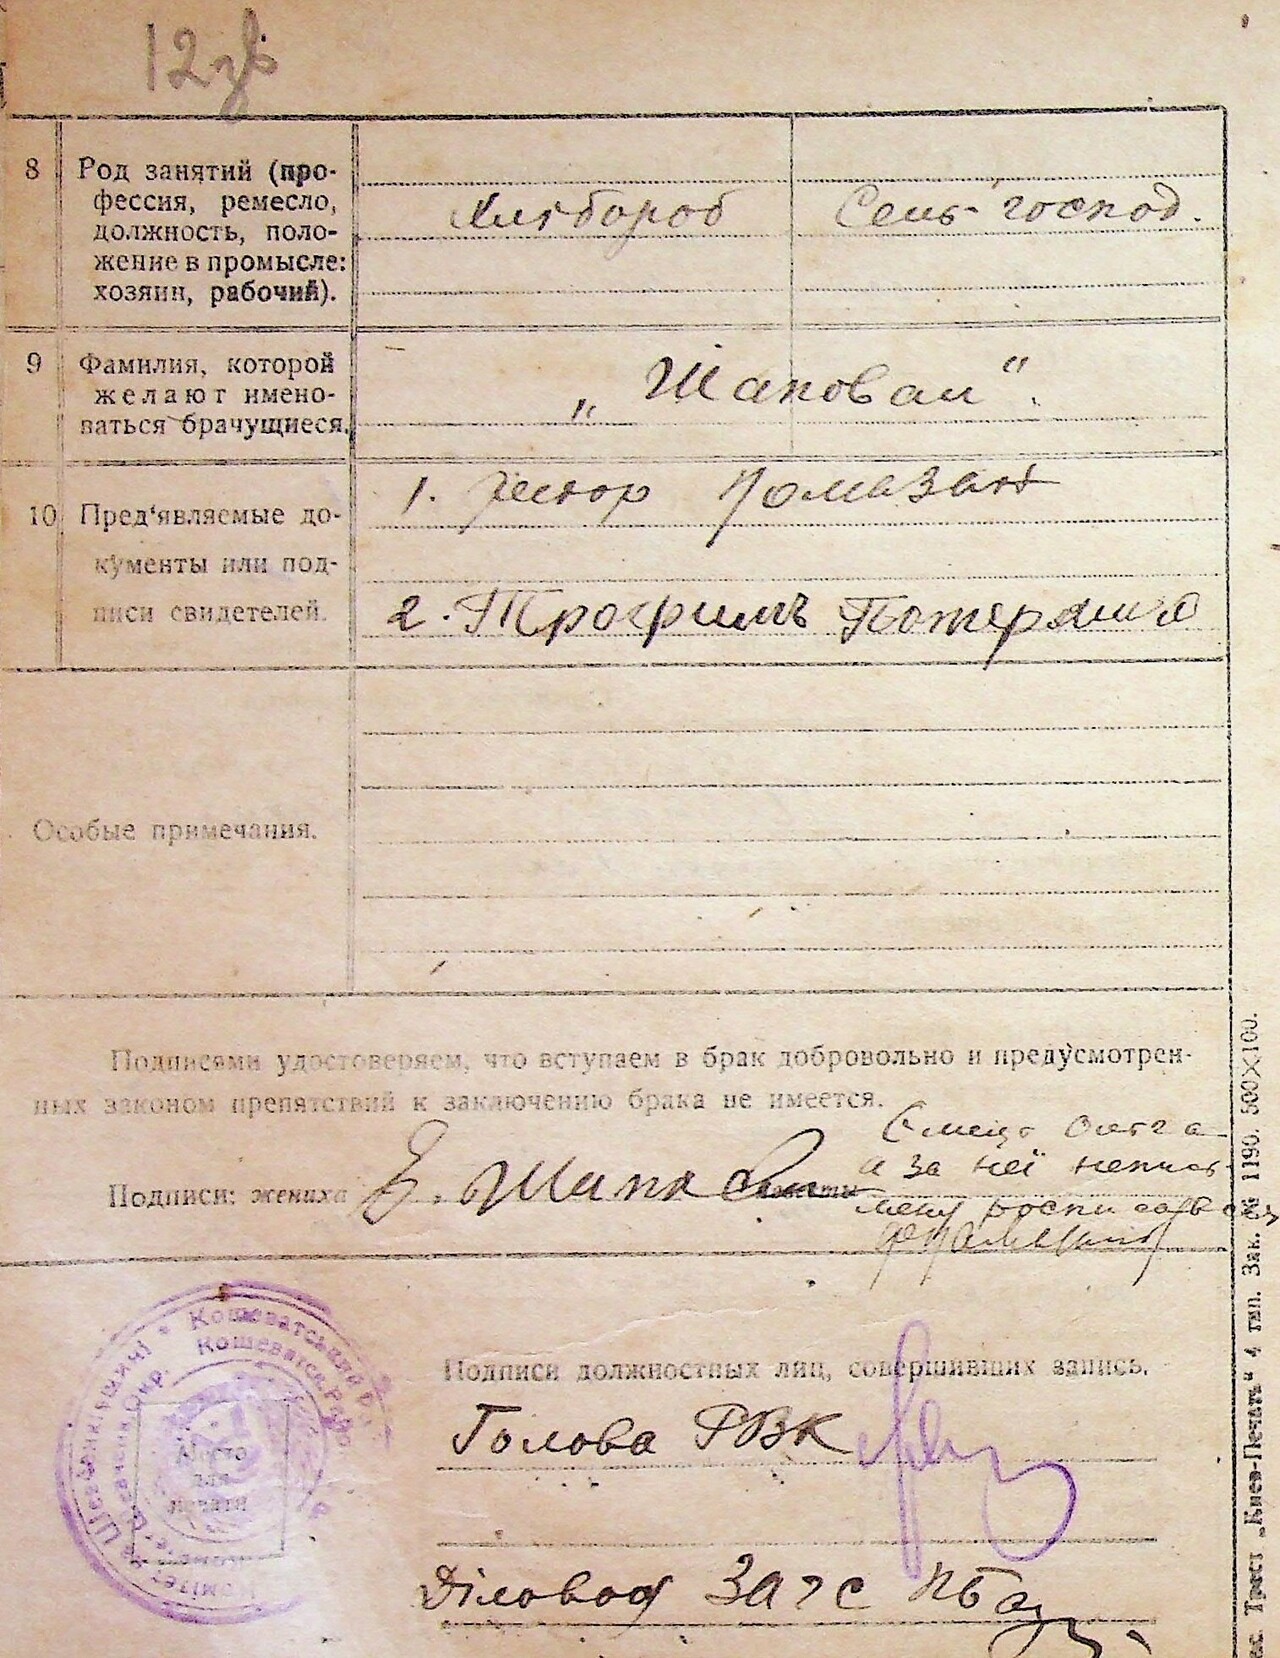 12 зв
8 Род занятий (про-
фессия, ремесло,
должность, поло-
жение в промысле:
хозяин, рабочий).
Хлебороб Сель-господ.
9 Фамилия, которой
желают имено-
ваться брачущиеся.
„Шаповал“.
10 Пред'являемые до-
кументы или под-
писи свидетелей.
1. Помазан
2. Трофимъ
Особые примечания.
Подписями удостоверяем, что вступаем в брак добровольно и предусмотрен-
ных законом препятствий к заключению брака не имеется.
Подписи: жениха
Ольга
а за неї
Подписи должностных лиц, совершивших запись.
Голова РВК
Діловод ЗАГС
Место
для
печати
Кошеватський
Трест „Киев-Печать“ 4 тип. Зак. № 1190. 500×100.